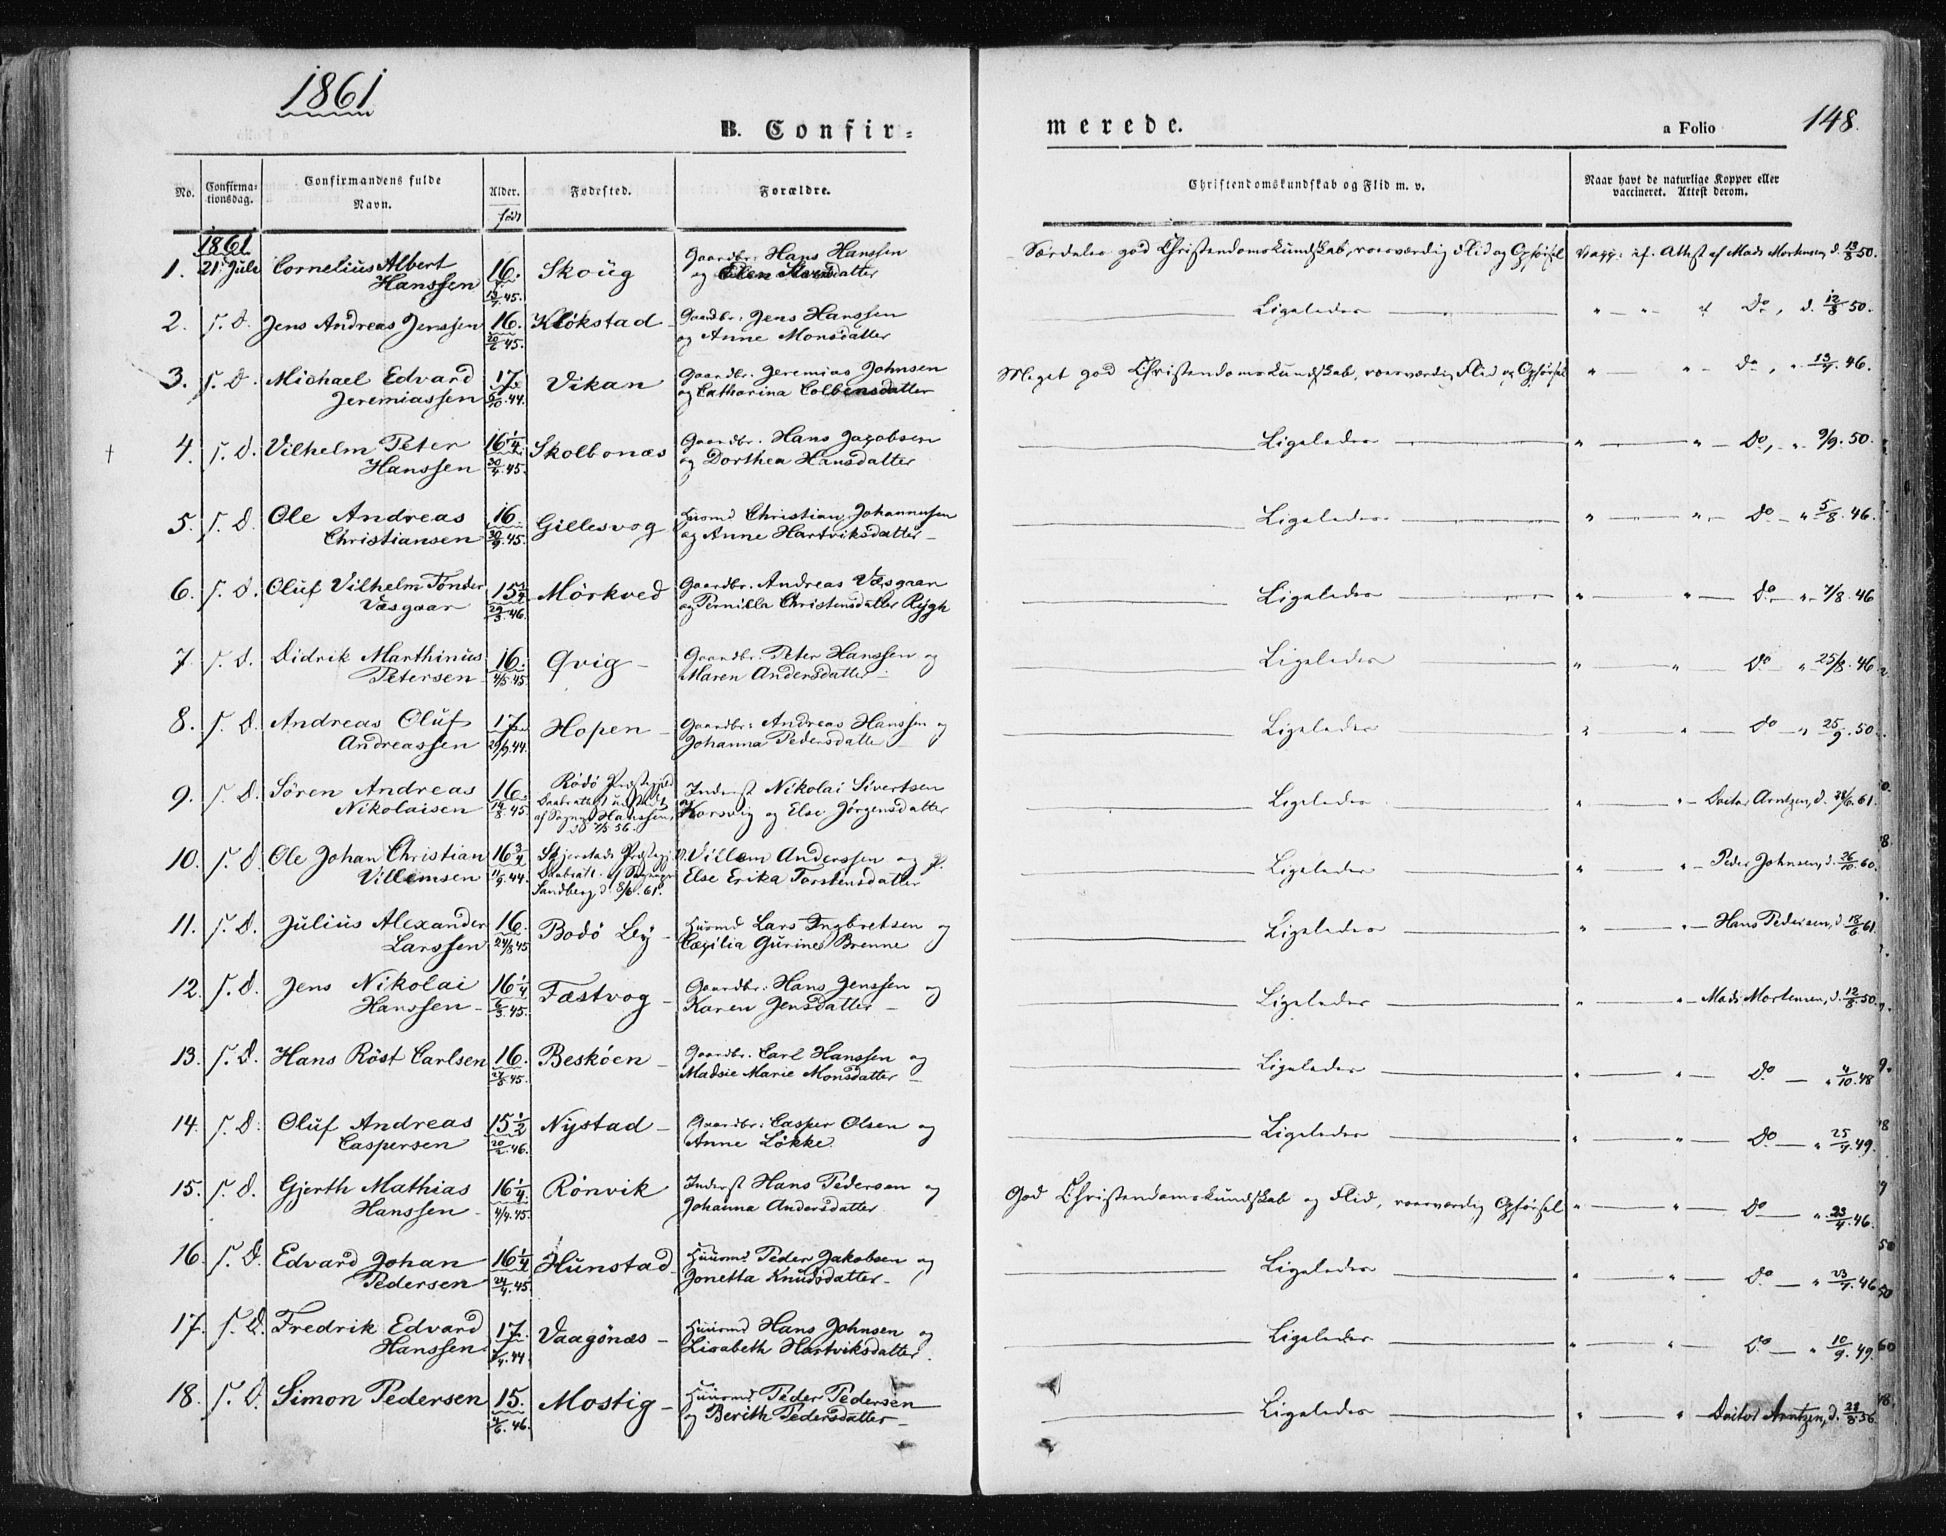 1861
B. Confir=
merede.
a Folio 148.
No.
Confirma-
tionsdag.
Confirmandens fulde
Navn.
Alder.
Fødested.
Forældre.
Christendomskundskab og Flid m. v.
Naar havt de naturlige Kopper eller
vaccineret. Attest derom.
1861
1. 21 Juli Cornelius Albert Hanssen 16. 13/7.45. Skoug Gaardbr. Hans Hanssen og datter Særdeles god Christendomskundskab, roesværdig Flid og Opførsel Vacc: if. Attest af Mads Mortensen, d. 13/8 50.
2. s. D. Jens Andreas Jenssen 16. 20/6.45. Kløkstad Gaardbr. Jens Hanssen og Anne Monsdatter Ligeledes " " Do, d. 12/8 50.
3. s. D. Michael Edvard Jeremiassen 17. 6/10.44. Vikan Gaardbr. Jeremias Johnsen og Catharina Colbensdatter Meget god Christendomskundskab, roesværdig Flid og Opførsel " " do, " 13/7.46.
4. s. D. Vilhelm Peter Hanssen 16 1/4 30/4.45. Skolbonæs Gaardbr. Hans Jacobsen og Dorthea Hansdatter Ligeledes " " Do, " 9/9.50.
5. s. D. Ole Andreas Christiansen 16. 45. Gillesvog Huusmd Christian Johannesen og Anne Hartviksdatter Ligeledes " " Do " 5/8.46.
6. s. D. Oluf Vilhelm Tønder Væsgaar 15 29/3.46. Mørkved Gaardbr. Andreas Væsgaar og Pernilla Christensdatter Rygh Ligeledes " " Do " 7/8.46
7. s. D. Didrik Marthinus Petersen 16. 4/5.45. Qvig Gaardbr. Peter Hanssen og Maren Andersdatter Ligeledes " " Do " 25/8.46
8. s. D. Andreas Oluf Andreassen 17. 29/9.44. Hopen Gaardbr: Andreas Hanssen og Johanna Pedersdatter Ligeledes " " Do " 25/9.50
9. s. D. Søren Andreas Nikolaisen 16. 14/8.45. Rødø Præstegjeld Daabsattest udstedt af Sogn: Hanssen, Inderst Nikolai Sivertsen Korsvig og Else Jørgensdatter Ligeledes " Doctor Arntzen, d. 28/6.61.
10. s. D. Ole Johan Christian Villemsen 16 3/4 11/9.44. Skjerstads Præstegj. Daabsatt. af Sogne Sandberg d. 8/6.61. Villem Anderssen og Else Erika Torstensdatter Ligeledes " " Peder Johnsen, d. 26/10.60.
11. s. D. Julius Alexander Larssen 16. 24/8 45 Bodø By Huusmd Lars Ingbretsen og Cecilia Gurine Brenne Ligeledes " " Hans Pedersen, d. 18/6 61.
12. s. D. Jens Nikolai Hanssen 16 1/4 6/3.45. Fæstvog Gaardbr: Hans Jenssen og Karen Jensdatter Ligeledes " " Mads Mortensen, d. 12/8.50.
13. s. D. Hans Røst Carlsen 16. 45. Beskøen Gaardbr. Carl Hanssen og Madsie Marie Monsdatter Ligeledes " " Do " 4/10.48
14. s. D. Oluf Andreas Caspersen 15 1/2 20/2.46. Nystad Gaardbr: Casper Olsen og Anne Løkke. Ligeledes " " Do " 25/7.49.
15. s. D. Gjerth Mathias Hanssen 16 1/4 4/4.45. Rønvik Inderst Hans Pedersen og Johanna Andersdatter God Christendomskundskab og Flid, roesværdig Opførsel " " Do " 23/7.46.
16. s. D. Edvard Johan Pedersen 16 1/4 24/4.45. Hunstad Huusmd Peder Jakobsen og Jonetta Knudsdatter Ligeledes " " Do " 23/7.46
17. s. D. Fredrik Edvard Hanssen 17. 44. Vaagønæs Huusmd Hans Johnsen og Lisabeth Hartviksdatter Ligeledes " " Do " 10/9.49.
18. s. D. Simon Pedersen 15. 4/6.46. Mostig Huusmd Peder Pedersen og Berith Pedersdatter Ligeledes " " Doctor Arntzen, d. 56.